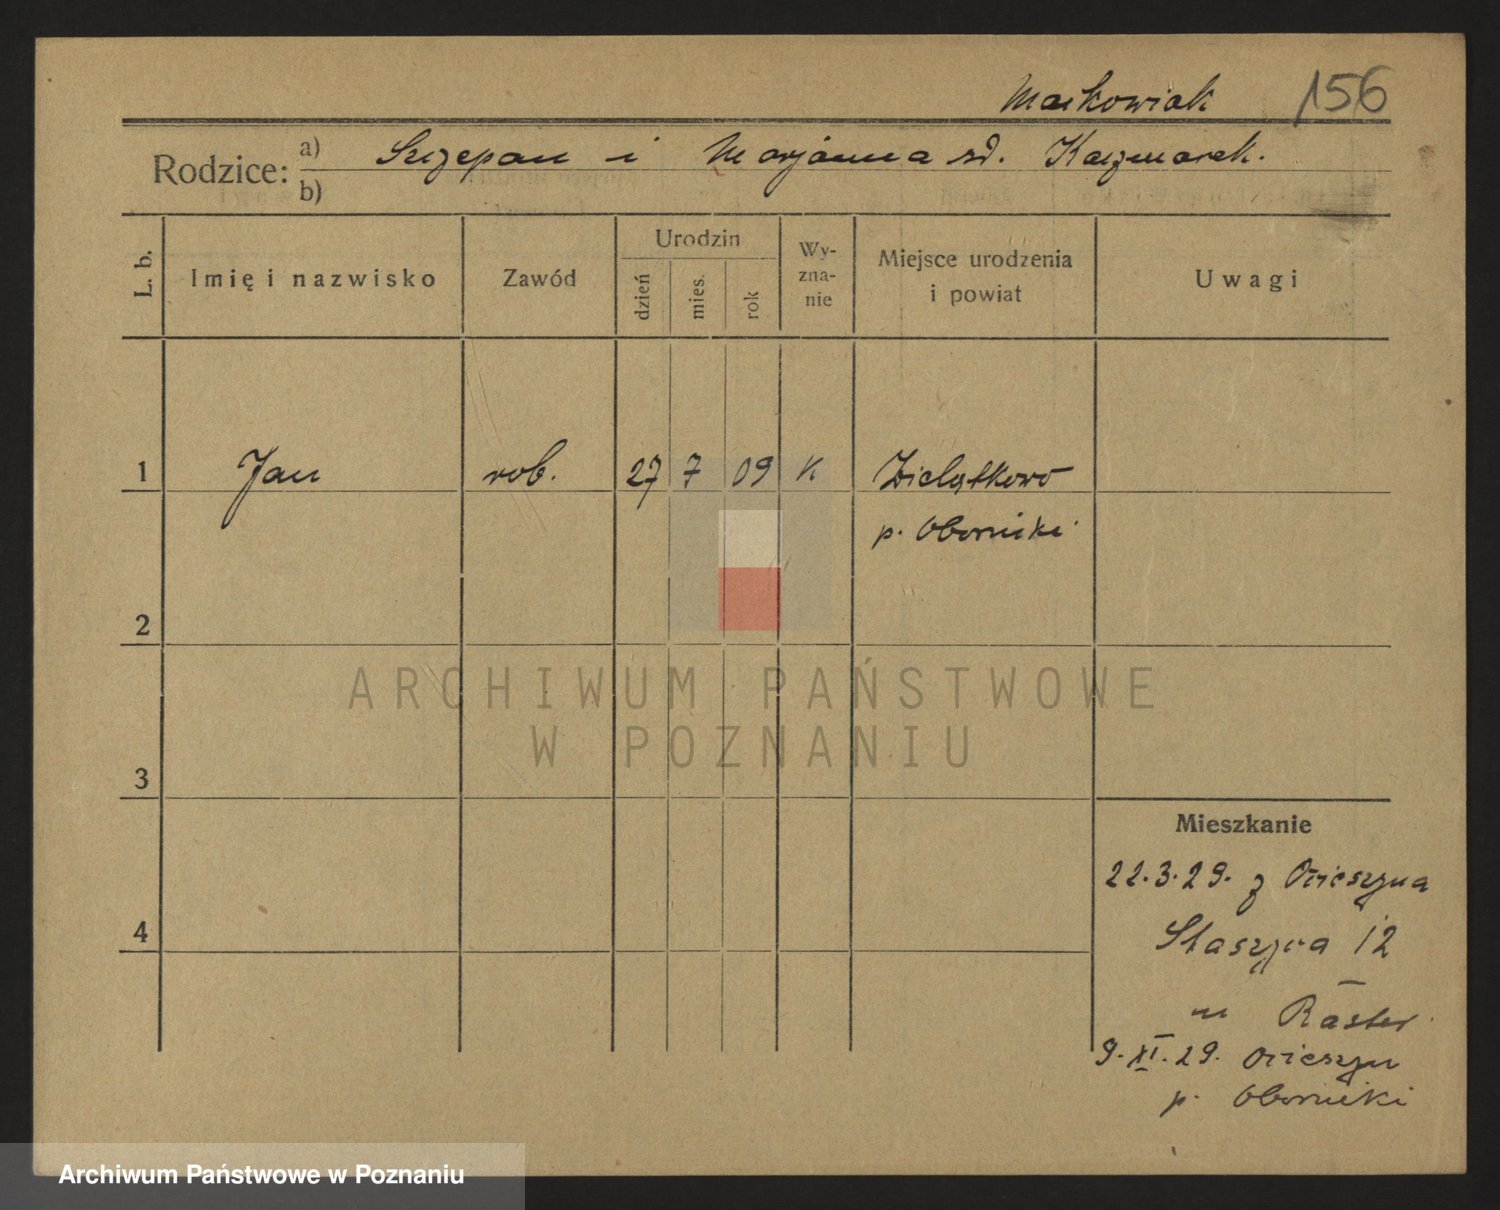 Markowiak 156
Rodzice: a) Szczepan i Marjanna zd. Kaczmarek.
b)
L. b.
Imię i nazwisko
Zawód
Urodzin
dzień
mies.
rok
Wy-
zna-
nie
Miejsce urodzenia
i powiat
Uwagi
1 Jan rob. 27 7 09 K Zielątkowo
p. Oborniki
2
3
4
ARCHIWUM PAŃSTWOWE
W POZNANIU
Mieszkanie
22.3.29. z Ocieszyna
Staszyca 12
u
9.XI.29. Ocieszyn
p. Oborniki
Archiwum Państwowe w Poznaniu